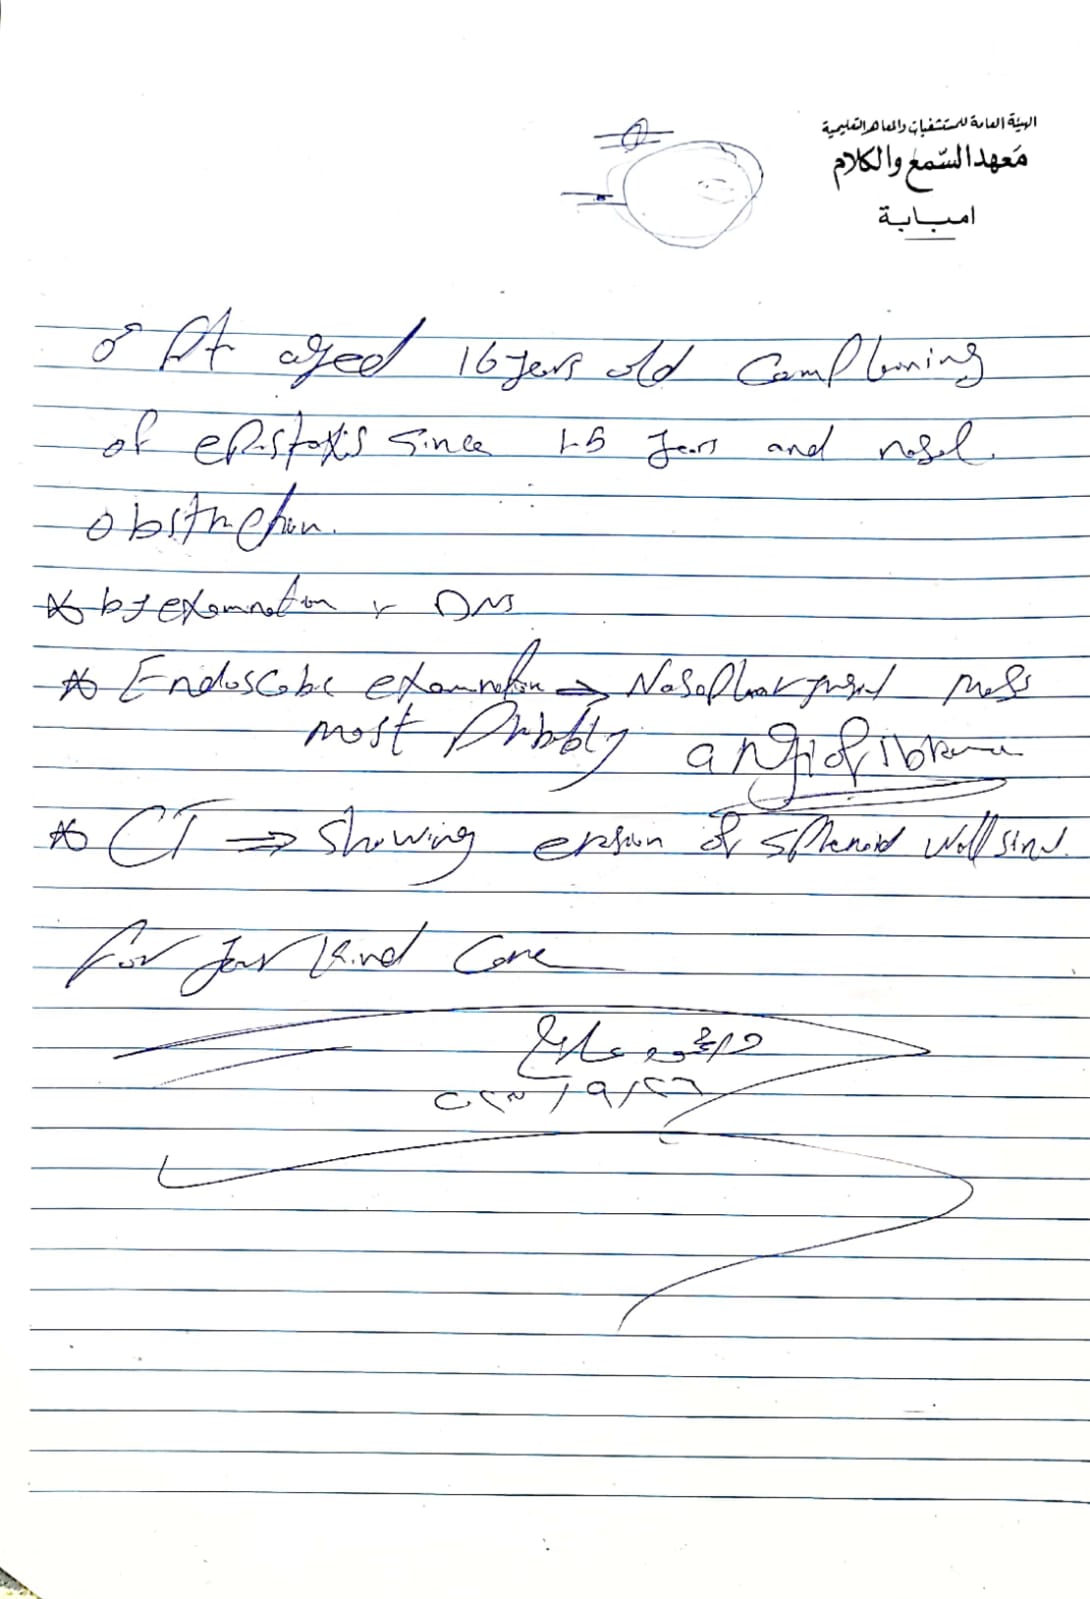 الهيئة العامة للمستشفيات والمعاهد التعليمية
معهد السمع والكلام
امبابة
♂ Pt aged 16 years old complaining
of epistaxis since 1.5 years and nasal
obstruction.
* by examination DNS
* Endoscobic examination ⇒ Nasopharyngeal mass
most probably angiofibroma
* CT ⇒ showing erosion of sphenoid wall sinus.
for your kind care